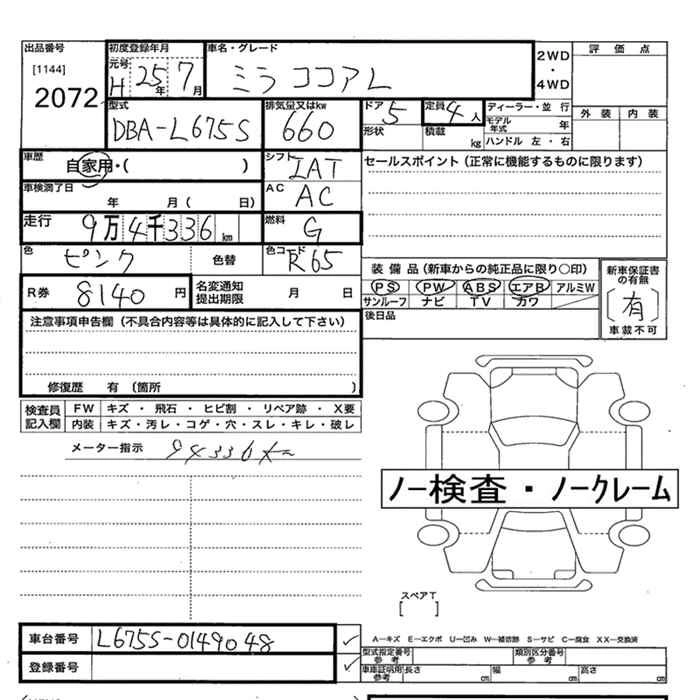 出品番号 初度登録年月 車名・グレード 評価点
[1144] 元号 H 25年 7月 ミラ ココア L 2WD・4WD
2072
型式 排気量又はkw ドア 5 定員 4人 ディーラー・並行 外装 内装
DBA-L675S 660 形状 積載 kg モデル年式 年
ハンドル 左・右
車歴 自家用・( ) シフト IAT セールスポイント (正常に機能するものに限ります)
車検満了日 年 月( 日) AC AC
走行 9万4千336km 燃料 G
色 ピンク 色替 色コード R65
装備品 (新車からの純正品に限り○印) 新車保証書の有無
R券 8140円 名変通知提出期限 月 日 PS PW ABS エアB アルミW [有]
サンルーフ ナビ TV カワ 車載不可
注意事項申告欄 (不具合内容等は具体的に記入して下さい) 後日品
修復歴 有 (箇所 )
検査員記入欄 FW キズ・飛石・ヒビ割・リペア跡・X要
内装 キズ・汚レ・コゲ・穴・スレ・キレ・破レ
メーター指示 94336km
ノー検査・ノークレーム
スペアT
[ ]
車台番号 L675S-0149048 ✓ A—キズ E—エクボ U—凹み W—補修跡 S—サビ C—腐食 XX—交換済
型式指定番号 参考 類別区分番号 参考
登録番号 ✓ 車車証明用 参考 長さ cm 幅 cm 高さ cm